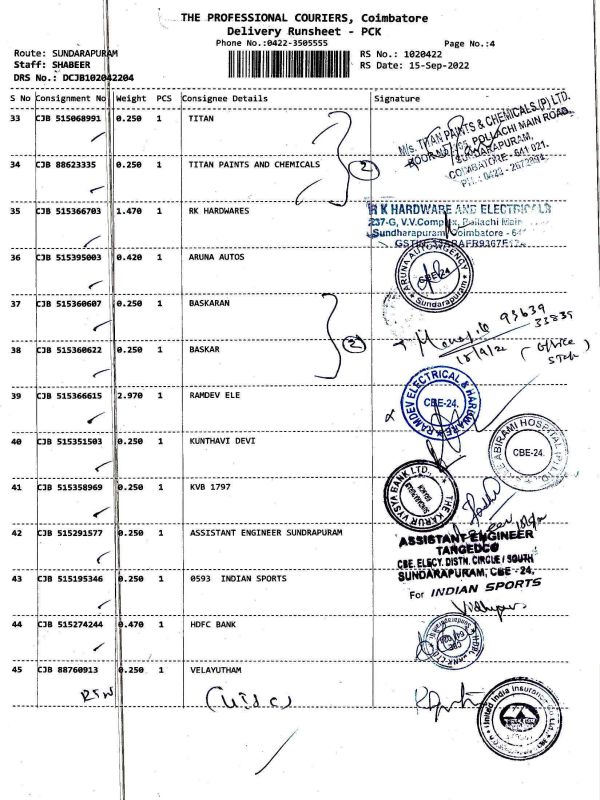 THE PROFESSIONAL COURIERS, Coimbatore
Delivery Runsheet - PCK
Phone No.:0422-3505555
Page No.:4
Route: SUNDARAPURAM
RS No.: 1020422
Staff: SHABEER
RS Date: 15-Sep-2022
DRS No.: DCJB102042204
S No Consignment No Weight PCS Consignee Details Signature
33 CJB 515068991 0.250 1 TITAN
M/s. TITAN PAINTS & CHEMICALS (P) LTD.
POLLACHI MAIN ROAD,
SUNDARAPURAM,
COIMBATORE - 641 021.
34 CJB 88623335 0.250 1 TITAN PAINTS AND CHEMICALS
2
35 CJB 515366703 1.470 1 RK HARDWARES
R K HARDWARE AND ELECTRICALS
237-G, V.V.Complex, Pollachi Main
Sundharapuram, Coimbatore - 64
36 CJB 515395003 0.420 1 ARUNA AUTOS
ARUNA AUTO AGENCY
CBE-24
Sundarapuram
37 CJB 515360607 0.250 1 BASKARAN
93639
33839
2
(office
38 CJB 515360622 0.250 1 BASKAR
39 CJB 515366615 2.970 1 RAMDEV ELE
RAMDEV ELECTRICAL & HARDWARE
CBE-24.
40 CJB 515351503 0.250 1 KUNTHAVI DEVI
ABIRAMI HOSPITAL (P) LTD
CBE-24.
41 CJB 515358969 0.250 1 KVB 1797
THE KARUR VYSYA BANK LTD.
42 CJB 515291577 0.250 1 ASSISTANT ENGINEER SUNDRAPURAM
ASSISTANT ENGINEER
TANGEDCO
CBE. ELECY. DISTN. CIRCLE / SOUTH
SUNDARAPURAM, CBE - 24.
43 CJB 515195346 0.250 1 0593 INDIAN SPORTS
For INDIAN SPORTS
44 CJB 515274244 0.470 1 HDFC BANK
HDFC BANK LTD
45 CJB 88760913 0.250 1 VELAYUTHAM
United India Insurance